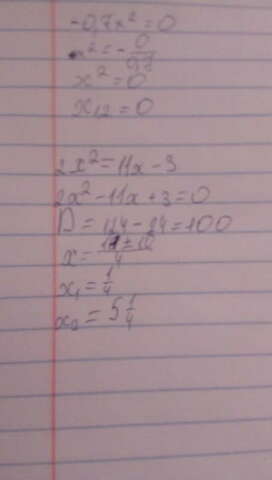 -0,7x² = 0
x² = - 0/0,7
x² = 0
x₁,₂ = 0
2x² = 11x - 3
2x² - 11x + 3 = 0
D = 124 - 24 = 100
x = 11 ± 10 / 4
x₁ = 1/4
x₂ = 5 1/4